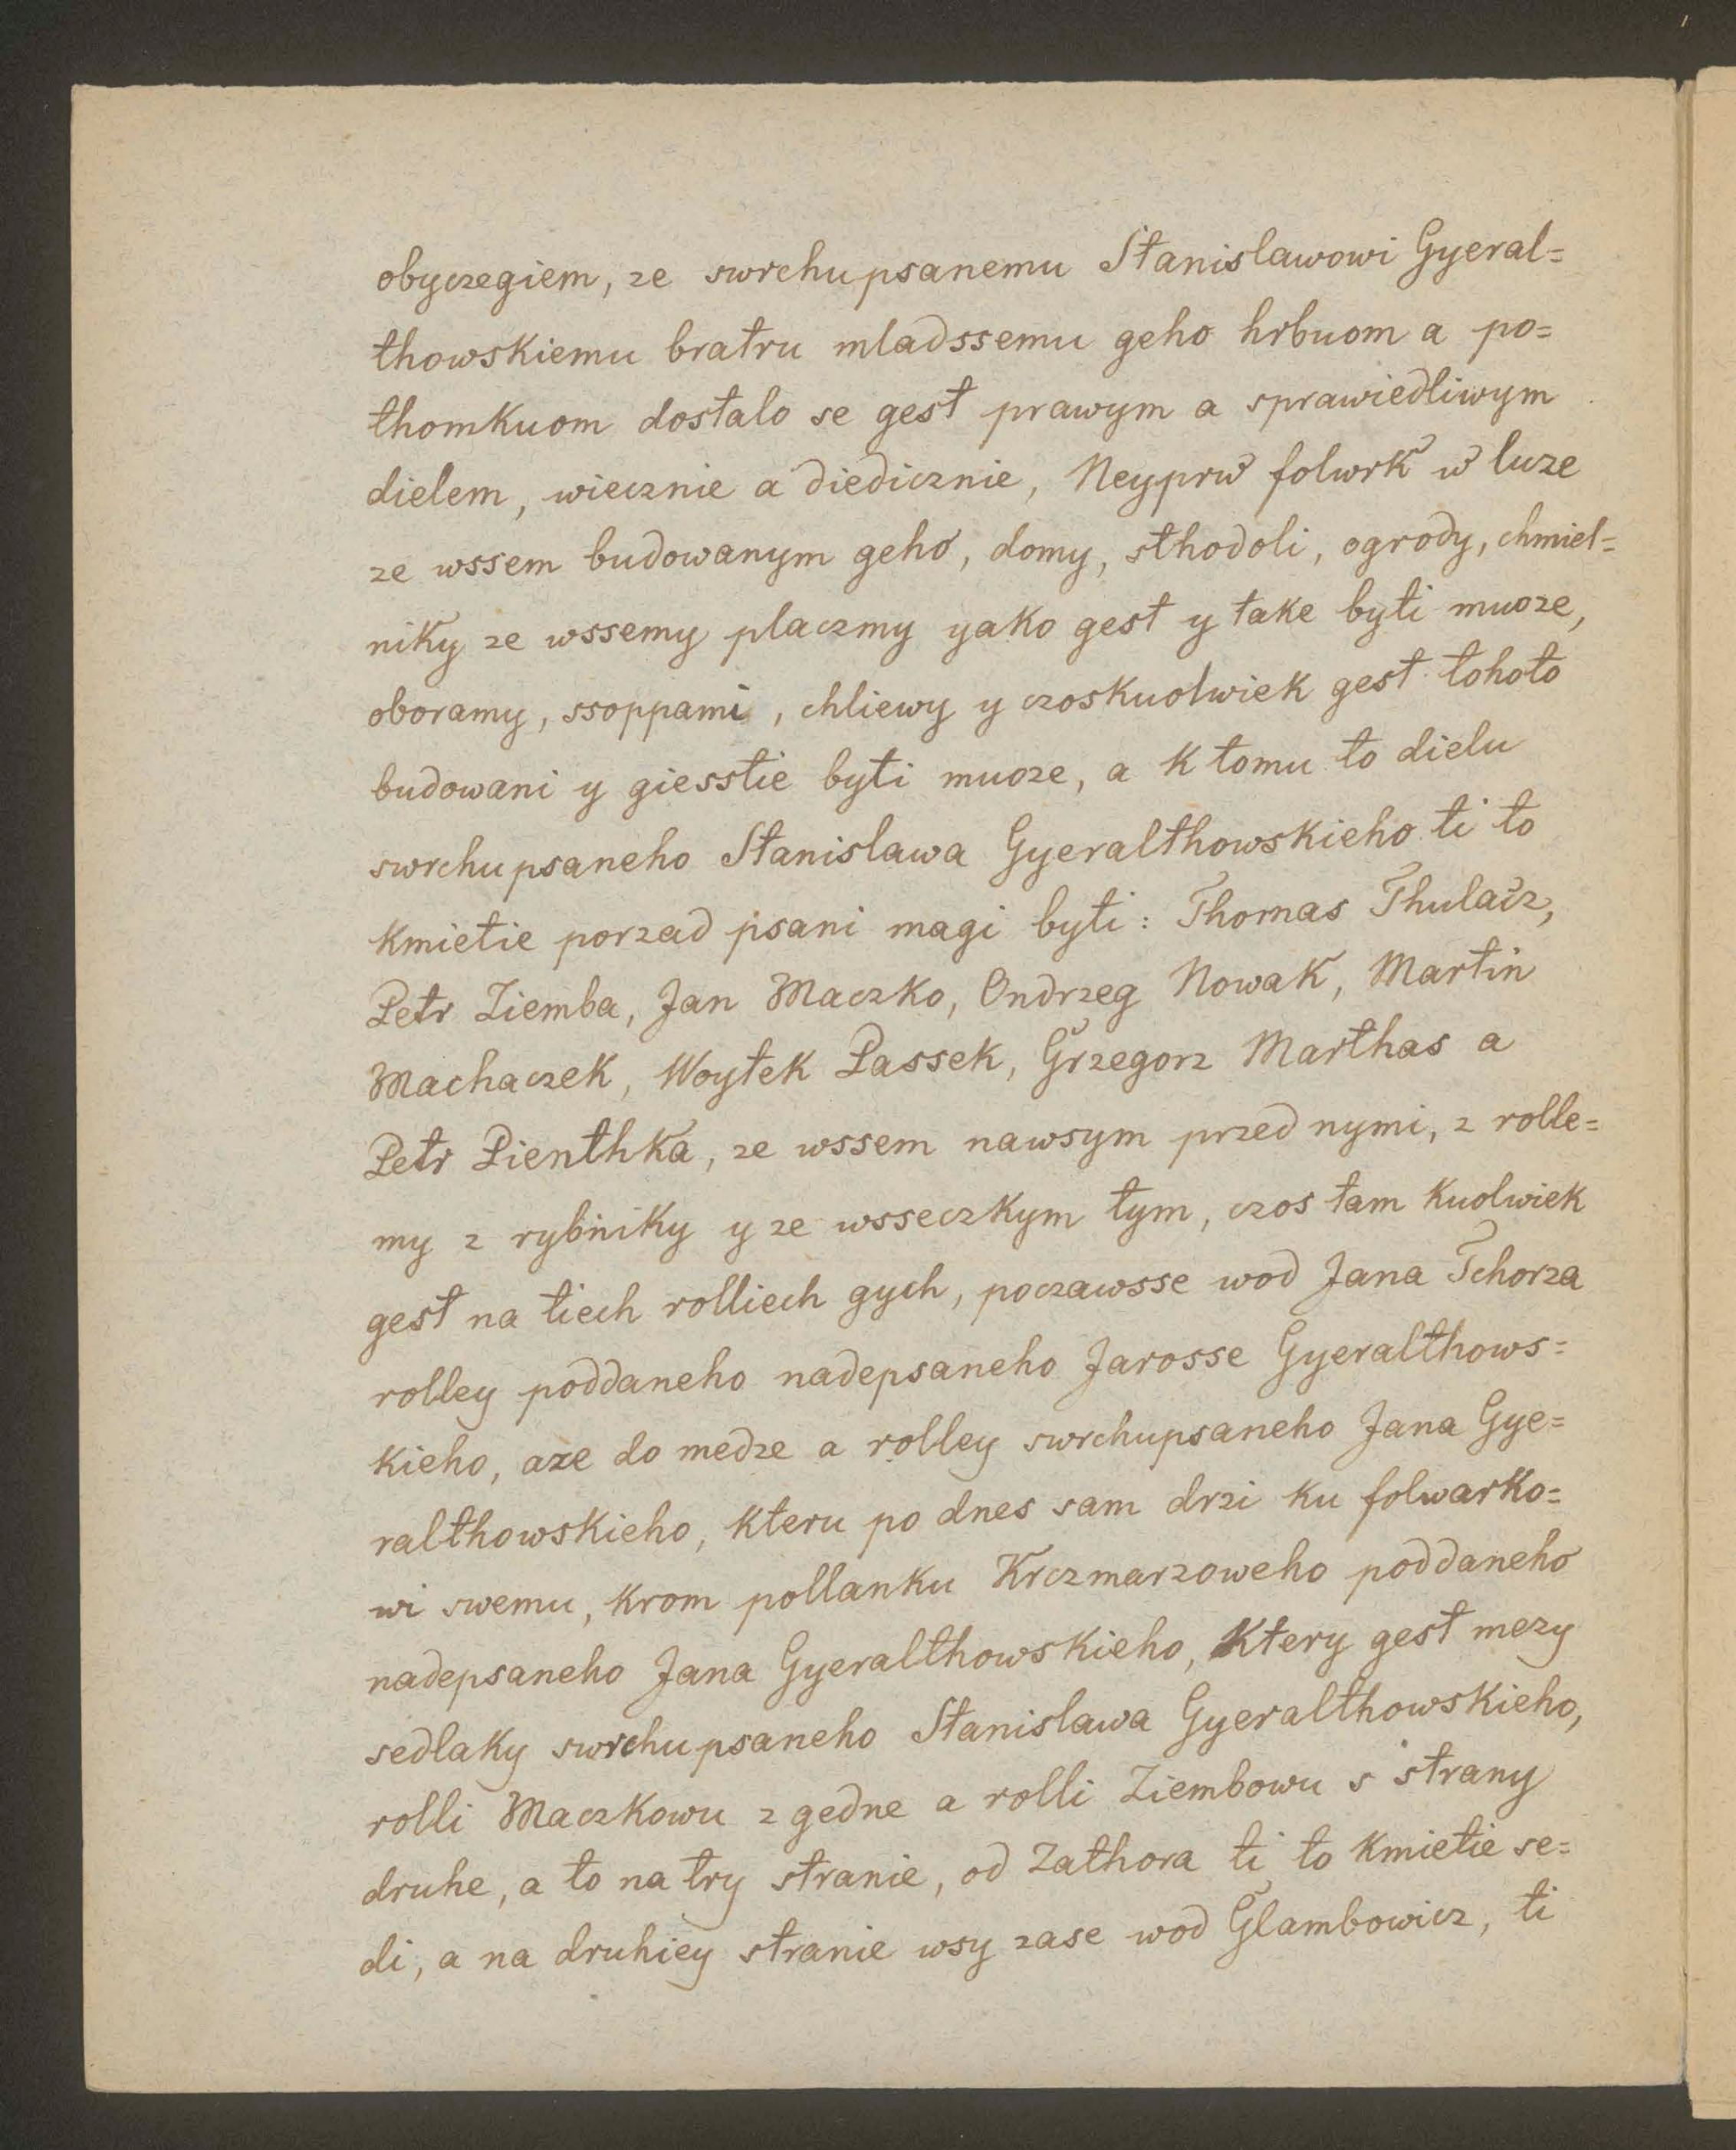 obyczegiem, ze swrchupsanemu Stanislawowi Gyeral=
thowskiemu bratru mladssemu geho hrbuom a po=
thomkuom dostalo se gest prawym a sprawiedliwym
dielem, wiecznie a diedicznie, Neyprw folwrk w luze
ze wssem budowanym geho, domy, sthodoli, ogrody, chmiel=
niky ze wssemy placzmy yako gest y take byti muoze,
oboramy, ssoppami, chliewy y czoskuolwiek gest tohoto
budowani y giesstie byti muoze, a k tomu to dielu
swrchupsaneho Stanislawa Gyeralthowskieho ti to
kmietie porzad psani magi byti: Thomas Thulacz,
Petr Ziemba, Jan Maczko, Ondrzeg Nowak, Martin
Machaczek, Woytek Passek, Grzegorz Marthas a
Petr Pienthka, ze wssem nawsym przed nymi, z rolle=
my z rybniky y ze wsseczkym tym, czos tam kuolwiek
gest na tiech rolliech gych, poczawsse wod Jana Tchorza
rolley poddaneho nadepsaneho Jarosse Gyeralthows=
kieho, aze do medze a rolley swrchupsaneho Jana Gye=
ralthowskieho, kteru po dnes sam drzi ku folwarko=
wi swemu, krom pollanku Krczmarzoweho poddaneho
nadepsaneho Jana Gyeralthowskieho, ktery gest mezy
sedlaky swrchupsaneho Stanislawa Gyeralthowskieho,
rolli Maczkowu z gedne a rolli Ziembowu s strany
druhe, a to na try stranie, od Zathora ti to kmietie se=
di, a na druhiey stranie wsy zase wod Glambowicz, ti